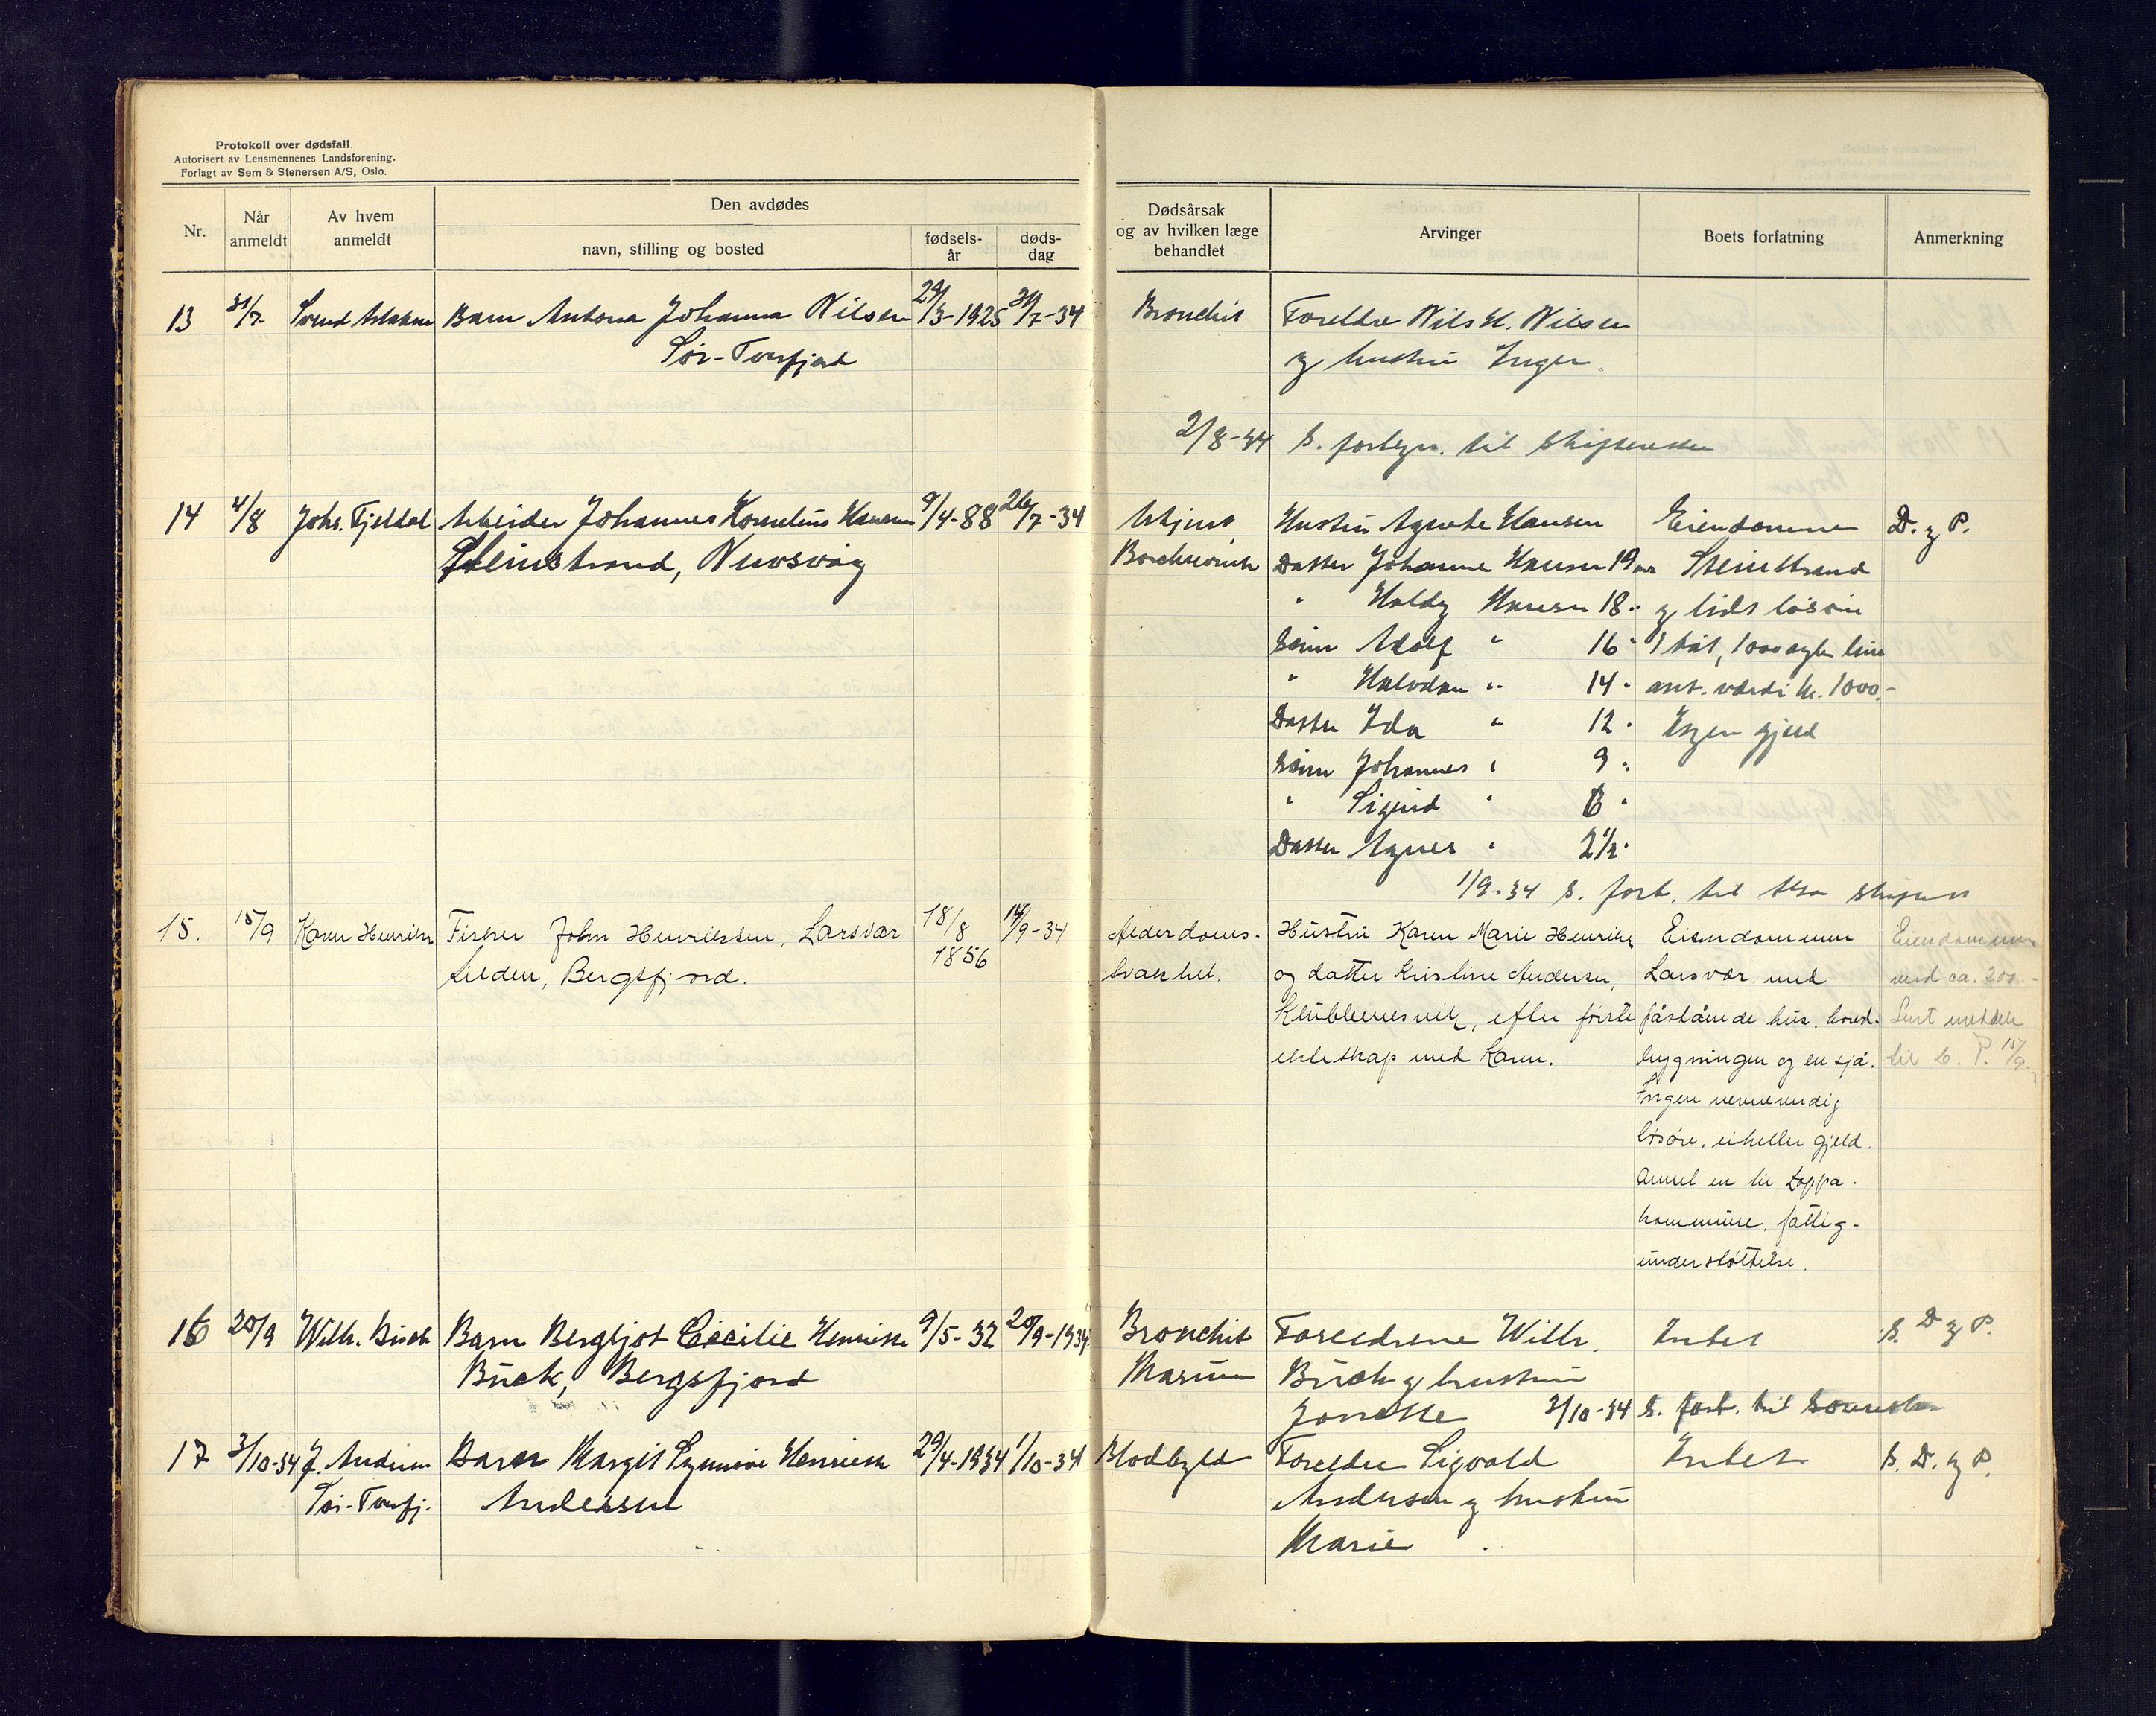 Protokoll over dødsfall.
Autorisert av Lensmennenes Landsforening.
Forlagt av Sem & Stenersen A/S, Oslo.
Nr.
Når anmeldt
Av hvem anmeldt
Den avdødes
navn, stilling og bosted
fødsels-år
døds-dag
Dødsårsak og av hvilken læge behandlet
Arvinger
Boets forfatning
Anmerkning
13 31/7- Barn Antona Johanna Nilsen 29/3-1925 31/7-34 Bronchit Foreldre Nils H. Nilsen
Sør-Tverfjord og hustru Inger.
2/8-34 S. til Skifteretten
14 4/8 Johs. Fjeldal Arbeider Johannes Kornelius Hansen 9/4-88 26/7-34 Hustru Agnete Hansen Eiendommen D. og P.
Steinstrand, Nuvsvåg Datter Johanne Hansen 19 år Steinstrand
" Hansen 18 " og lidt løsøre
Sønn Adolf " 16 " 1 båt, 1000 line
" Halvdan " 14 " ant. værdi kr. 1000.-
Datter Ida " 12 " Ingen gjeld
Sønn Johannes " 9 "
" Sigurd " 6 "
Datter Agnes " 2½ "
1/9-34 S. til
15. 15/9 Karen Henriksen Fisker John Henriksen, Larsvær 18/8 14/9-34 Alderdoms- Hustru Karen Marie Henriksen Eiendommen Eiendommen
1856
Silden, Bergsfjord. svakhet. og datter Kristine Andersen, Larsvær med verd ca. 200.-
Klubbenesvik, efter første påstående hus, hoved- Sent
ekteskap med Karen. bygningen og en sjå. til S. P. 15/9
Ingen neverdig
løsøre, eiheller gjeld.
Annet en til Loppa
kommune, fattig-
understøttelse.
16 20/9 Wilh. Buck Barn Bergljot Cecilie Henrikke 9/5-32 20/9-1934 Bronchit Foreldrene Wilh. Intet S. D og P.
Buck, Bergsfjord Buck og hustru
Jonette 2/10-34 S. til
17 3/10-34 J. Andersen Barn Margit Synnøve Henrikke 29/4-1934 1/10-34 Foreldre Sigvald Intet S. D. og P.
Sør-Tverfj. Andersen Andersen og hustru
Marie